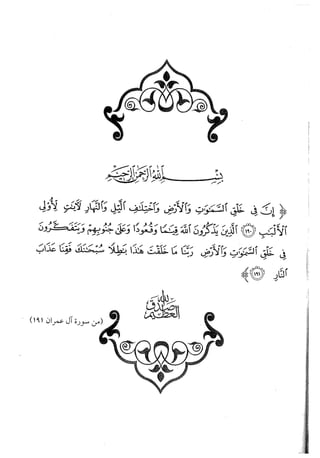 بسم الله الرحمن الرحيم
﴿ إِنَّ فِي خَلْقِ السَّمَٰوَٰتِ وَالْأَرْضِ وَاخْتِلَٰفِ الَّيْلِ وَالنَّهَارِ لَءَايَٰتٍ لِّأُوْلِي
الْأَلْبَٰبِ ﴿١٩٠﴾ الَّذِينَ يَذْكُرُونَ اللَّهَ قِيَٰمًا وَقُعُودًا وَعَلَىٰ جُنُوبِهِمْ وَيَتَفَكَّرُونَ
فِي خَلْقِ السَّمَٰوَٰتِ وَالْأَرْضِ رَبَّنَا مَا خَلَقْتَ هَٰذَا بَٰطِلًا سُبْحَٰنَكَ فَقِنَا عَذَابَ
النَّارِ ﴿١٩١﴾
صدق الله العظيم
(من سورة آل عمران ١٩١)